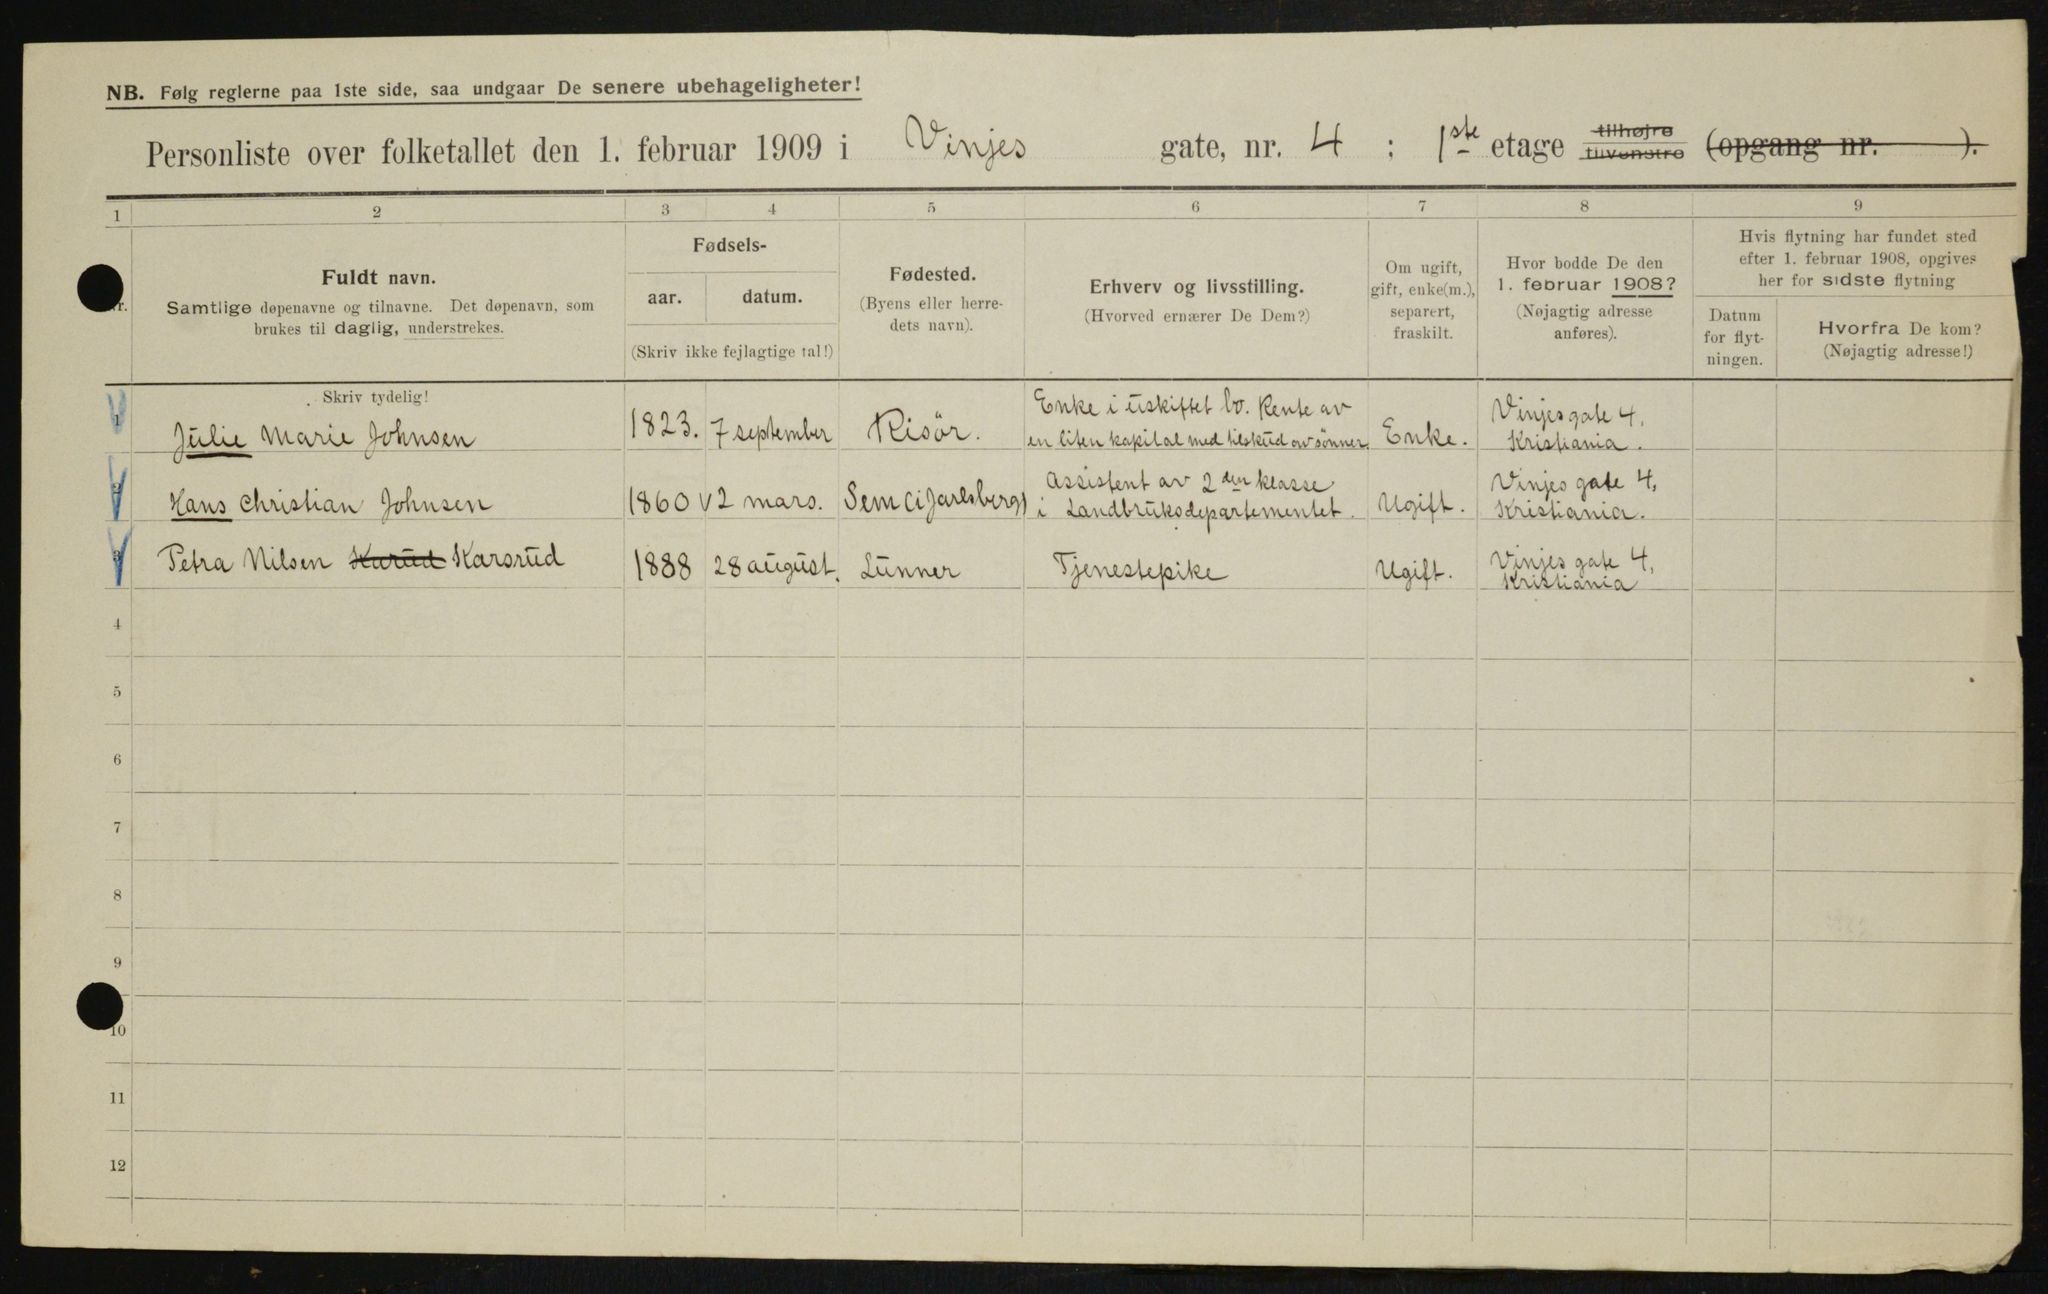 NB. Følg reglerne paa 1ste side, saa undgaar De senere ubehageligheter!
Personliste over folketallet den 1. februar 1909 i Vinjes gate, nr. 4 ; 1ste etage tilhøjre tilvenstre (opgang nr. ).
1 2 3 4 5 6 7 8 9
Nr.
Fuldt navn.
Samtlige døpenavne og tilnavne. Det døpenavn, som
brukes til daglig, understrekes.
Fødsels-
aar. datum.
(Skriv ikke fejlagtige tal!)
Fødested.
(Byens eller herre-
dets navn).
Erhverv og livsstilling.
(Hvorved ernærer De Dem?)
Om ugift,
gift, enke(m.),
separert,
fraskilt.
Hvor bodde De den
1. februar 1908?
(Nøjagtig adresse
anføres).
Hvis flytning har fundet sted
efter 1. februar 1908, opgives
her for sidste flytning
Datum
for flyt-
ningen.
Hvorfra De kom?
(Nøjagtig adresse!)
Skriv tydelig!
1 Julie Marie Johnsen 1823. 7 september Risör. Enke i uskiftet bo. Rente av
en liten kapital med tilskud av sønner. Enke. Vinjes gate 4,
Kristiania.
2 Hans Christian Johnsen 1860 12 mars. Sem (i Jarlsberg) Assistent av 2den klasse
i Landbruksdepartementet. Ugift. Vinjes gate 4,
Kristiania.
3 Petra Nilsen Karud Karsrud 1888 28 august. Lunner Tjenestepike Ugift. Vinjes gate 4,
Kristiania
4
5
6
7
8
9
10
11
12